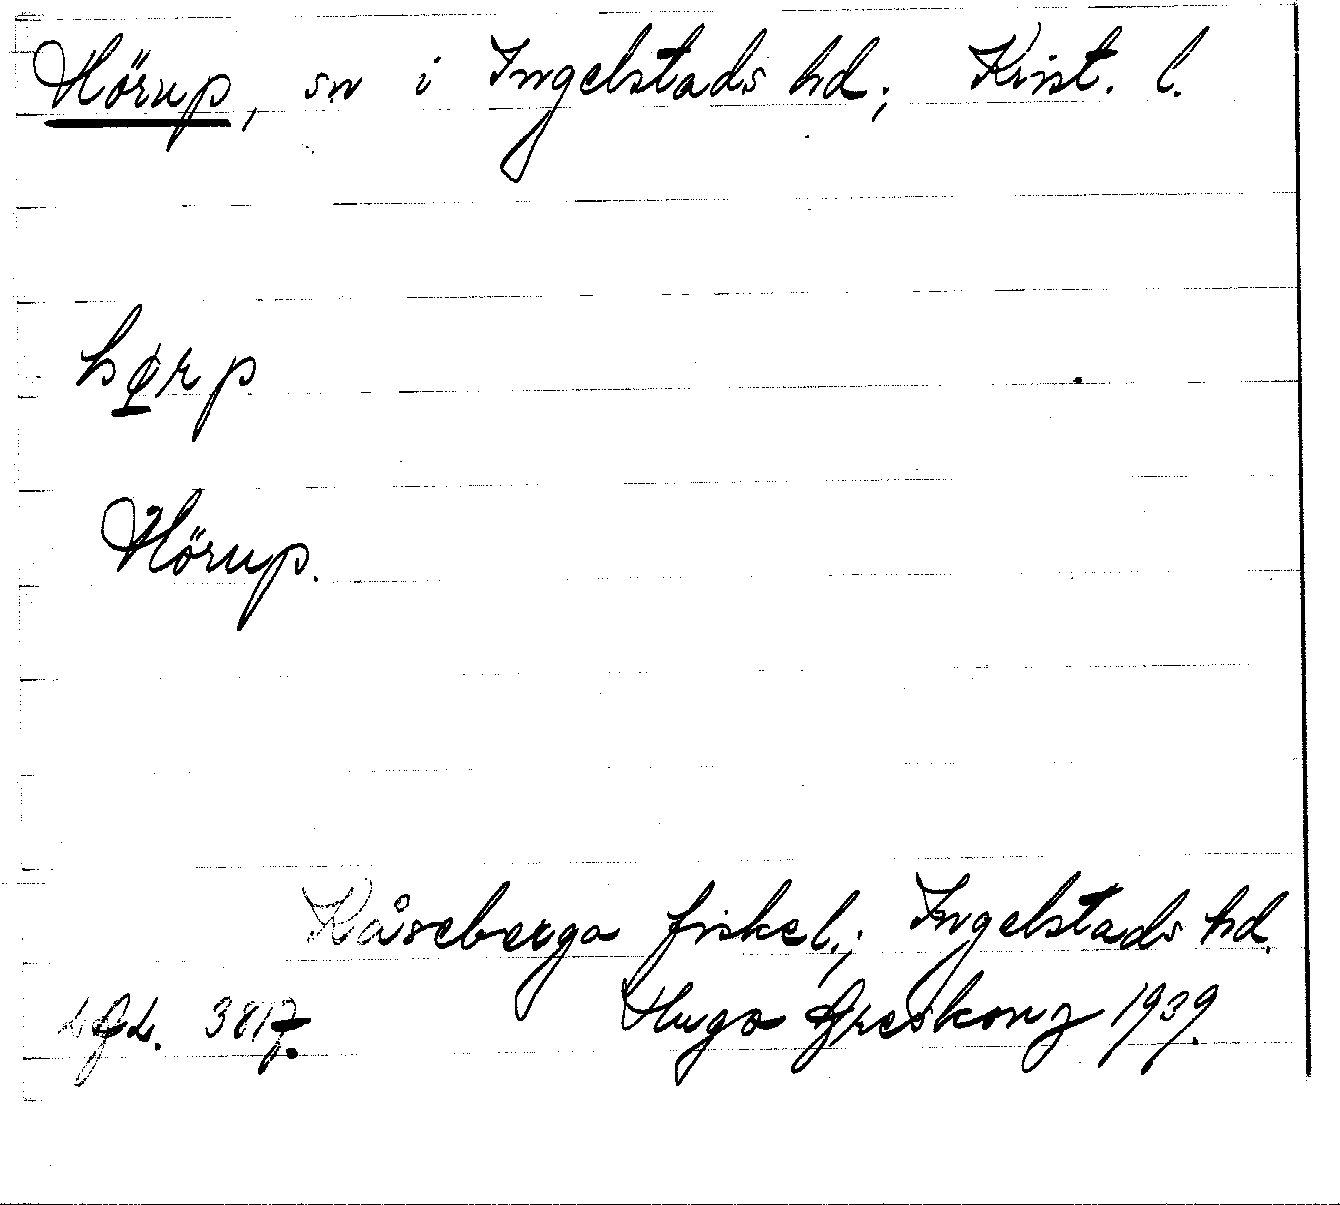 Hörup, sn i Ingelstads hd; Krist. l.
hørp
Hörup.
Kåseberga fiskel.; Ingelstads hd.
LGL. 3817. Hugo Areskoug 1939.